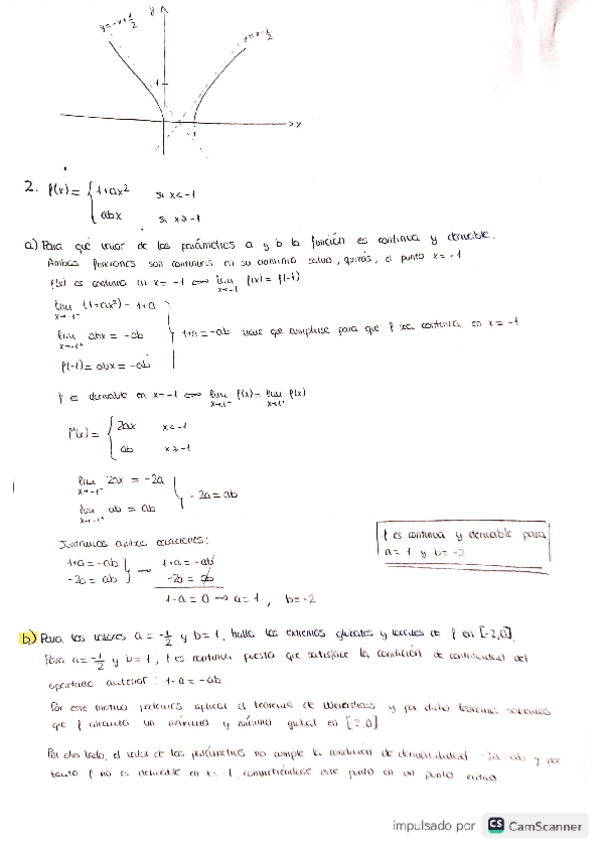 y=-x+1/2
y
y=x-1/2
1
x
1
2. f(x)= { 1+ax² si x<-1
abx si x≥-1
a) Para qué valor de los parámetros a y b la función es continua y derivable.
Ambas funciones son continuas en su dominio salvo, quizás, el punto x=-1
f(x) es continua en x=-1 ⟺ lim x→-1 f(x)=f(-1)
lim x→-1⁻ (1+ax²)=1+a
lim x→-1⁺ abx = -ab } 1+a=-ab tiene que cumplirse para que f sea continua en x=-1
f(-1)=abx=-ab
f es derivable en x=-1 ⟺ lim x→-1⁻ f(x)= lim x→-1⁺ f(x)
f'(x)= { 2ax x<-1
ab x≥-1
lim x→-1⁻ 2ax = -2a
lim x→-1⁺ ab = ab } -2a=ab
Juntamos ambas ecuaciones:
1+a=-ab } → 1+a=-ab
-2a=ab -2a=ab
1-a=0 → a=1, b=-2
f es continua y derivable para
a=1 y b=-2
b) Para los valores a=-1/2 y b=1, halla los extremos globales y locales de f en [-2,0].
Para a=-1/2 y b=1, f es continua puesto que satisface la condición de continuidad del
apartado anterior: 1+a=-ab
Por ese motivo podemos aplicar el teorema de Weierstrass y por dicho teorema sabemos
que f alcanza un máximo y mínimo global en [-2,0]
Por otro lado, el valor de los parámetros no cumple la condición de derivabilidad -2a=ab y por
tanto f no es derivable en x=-1, convirtiéndose este punto en un punto crítico
impulsado por CS CamScanner